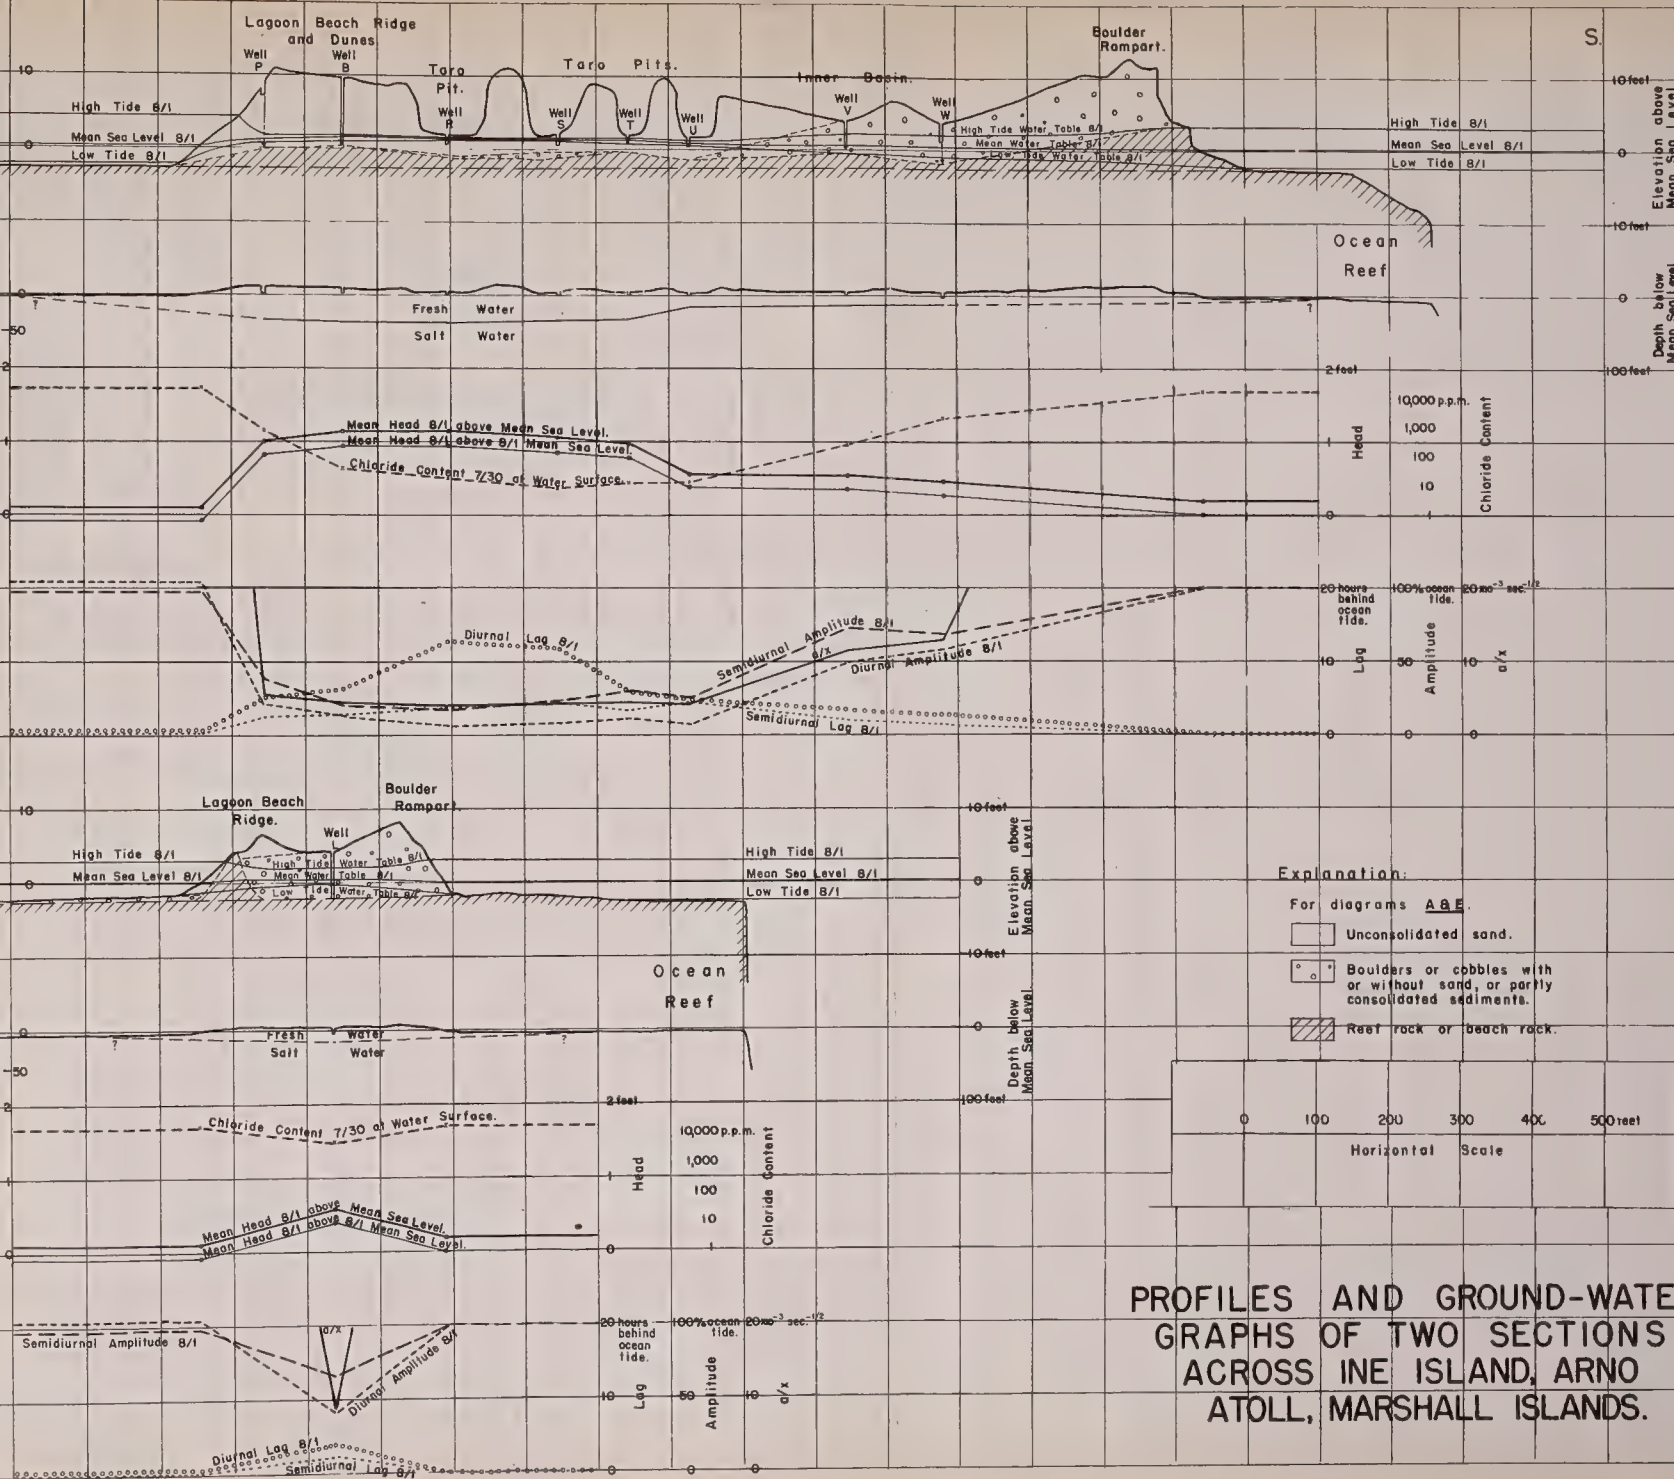 Lagoon Beach Ridge
and Dunes
Well
P
Well
B
Taro
Pit.
Well
R
Taro Pits.
Well
S
Well
T
Well
U
Inner Basin.
Well
V
Well
W
Boulder
Rampart.
S.
10
High Tide 8/1
Mean Sea Level 8/1
0
Low Tide 8/1
High Tide Water Table 8/1
Mean Water Table 8/1
Low Tide Water Table 8/1
High Tide 8/1
Mean Sea Level 8/1
Low Tide 8/1
10 feet
0
10 feet
Elevation above
Mean Sea Level
Ocean
Reef
0
?
50
Fresh Water
Salt Water
?
0
100 feet
Depth below
Mean Sea Level
2
1
0
Mean Head 8/1 above Mean Sea Level.
Mean Head 8/1 above 8/1 Mean Sea Level.
Chloride Content 7/30 at Water Surface.
2 feet
1
0
Head
10,000 p.p.m.
1,000
100
10
1
Chloride Content
Diurnal Lag 8/1
Semidiurnal Amplitude 8/1
a/x
Diurnal Amplitude 8/1
Semidiurnal Lag 8/1
20 hours
behind
ocean
tide.
10
0
Lag
100% ocean
tide.
50
0
Amplitude
20 mo⁻³ sec⁻¹/²
10
0
a/x
10
Lagoon Beach
Ridge.
Boulder
Rampart.
Well
L
High Tide 8/1
Mean Sea Level 8/1
0
High Tide Water Table 8/1
Mean Water Table 8/1
Low Tide Water Table 8/1
High Tide 8/1
Mean Sea Level 8/1
Low Tide 8/1
10 feet
0
10 feet
Elevation above
Mean Sea Level
Ocean
Reef
0
?
50
Fresh Water
Salt Water
?
0
100 feet
Depth below
Mean Sea Level.
2
1
0
Chloride Content 7/30 at Water Surface.
Mean Head 8/1 above Mean Sea Level.
Mean Head 8/1 above 8/1 Mean Sea Level.
2 feet
1
0
Head
10,000 p.p.m.
1,000
100
10
1
Chloride Content
Semidiurnal Amplitude 8/1
a/x
Diurnal Amplitude 8/1
Diurnal Lag 8/1
Semidiurnal Lag 8/1
20 hours
behind
ocean
tide.
10
0
Lag
100% ocean
tide.
50
0
Amplitude
20 mo⁻³ sec⁻¹/²
10
0
a/x
Explanation:
For diagrams A&E.
Unconsolidated sand.
Boulders or cobbles with
or without sand, or partly
consolidated sediments.
Reef rock or beach rock.
0 100 200 300 400 500 feet
Horizontal Scale
PROFILES AND GROUND-WATE
GRAPHS OF TWO SECTIONS
ACROSS INE ISLAND, ARNO
ATOLL, MARSHALL ISLANDS.